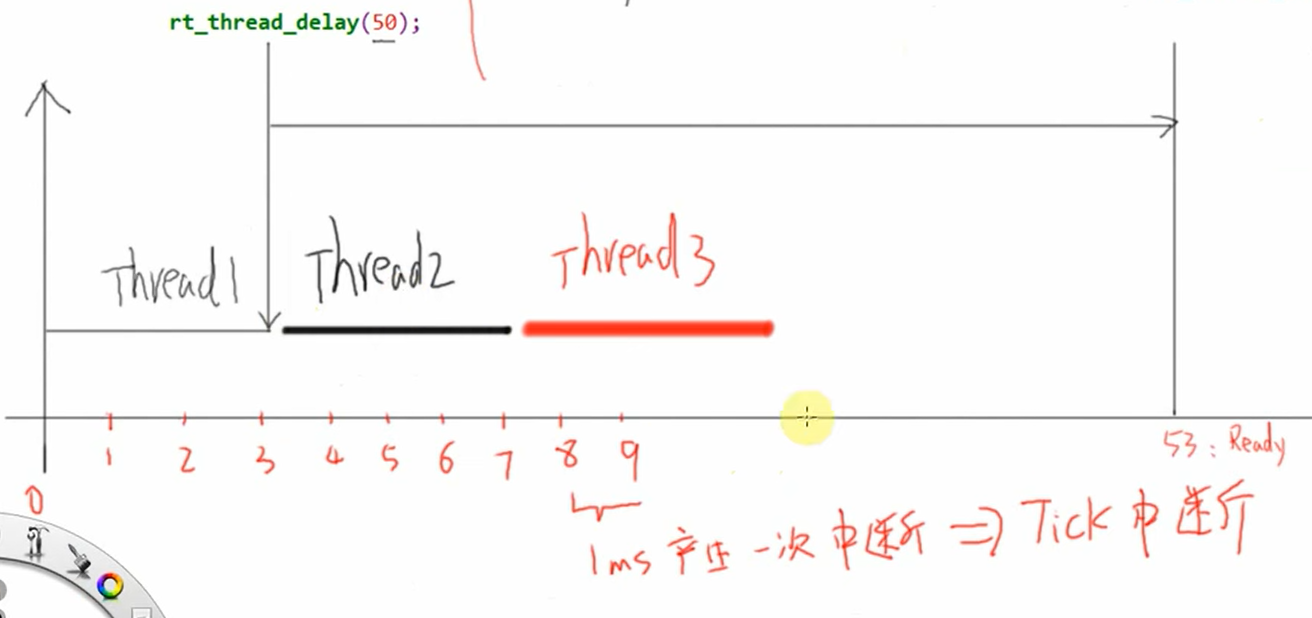 rt_thread_delay(50);
Thread1 Thread2 Thread3
0 1 2 3 4 5 6 7 8 9 53: Ready
1ms 产生一次中断 => Tick 中断